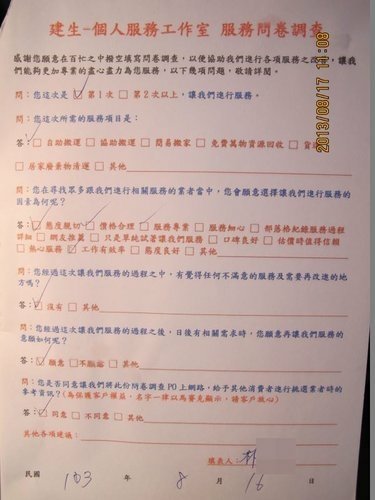 建生-個人服務工作室 服務問卷調查
2013/08/17 11:08
感謝您願意在百忙之中撥空填寫問卷調查，以便協助我們進行各項服務之改善，讓我
們能夠更加專業的盡心盡力為您服務，以下幾項問題，敬請詳閱。
問：您這次是 ☑ 第1次 □ 第2次以上，讓我們進行服務。
問：您這次所需的服務項目是：
答：☑ 自助搬運 □ 協助搬運 □ 簡易搬家 □ 免費萬物資源回收 □
□ 居家廢棄物清運 □ 其他
問：您在尋找眾多跟我們進行相關服務的業者當中，您會願意選擇讓我們進行服務的
因素為何呢？
答：☑ 態度親切 □ 價格合理 □ 服務專業 □ 服務細心 □ 部落格紀錄服務過程
詳細 □ 網友推薦 □ 只是單純試著讓我們服務 □ 口碑良好 □ 估價時值得信賴
□ 熱心服務 ☑ 工作有效率 □ 態度良好 □ 其他
問：您經過這次讓我們服務的過程之中，有覺得任何不滿意的服務及需要再改進的地
方嗎？
答：☑ 沒有 □ 其他
問：您經過這次讓我們服務的過程之後，日後有相關需求時，您願意再讓我們服務的
意願如何呢？
答：☑ 願意 □ 不願意 □ 其他
問：您是否同意讓我們將此份問卷調查PO上網路，給予其他消費者進行挑選業者時的
參考資訊？(為保護客戶權益，名字一律以馬賽克顯示，請客戶放心)
答：☑ 同意 □ 不同意 □ 其他
其他各項建議：
填表人：林
民國 103 年 8 月 16 日